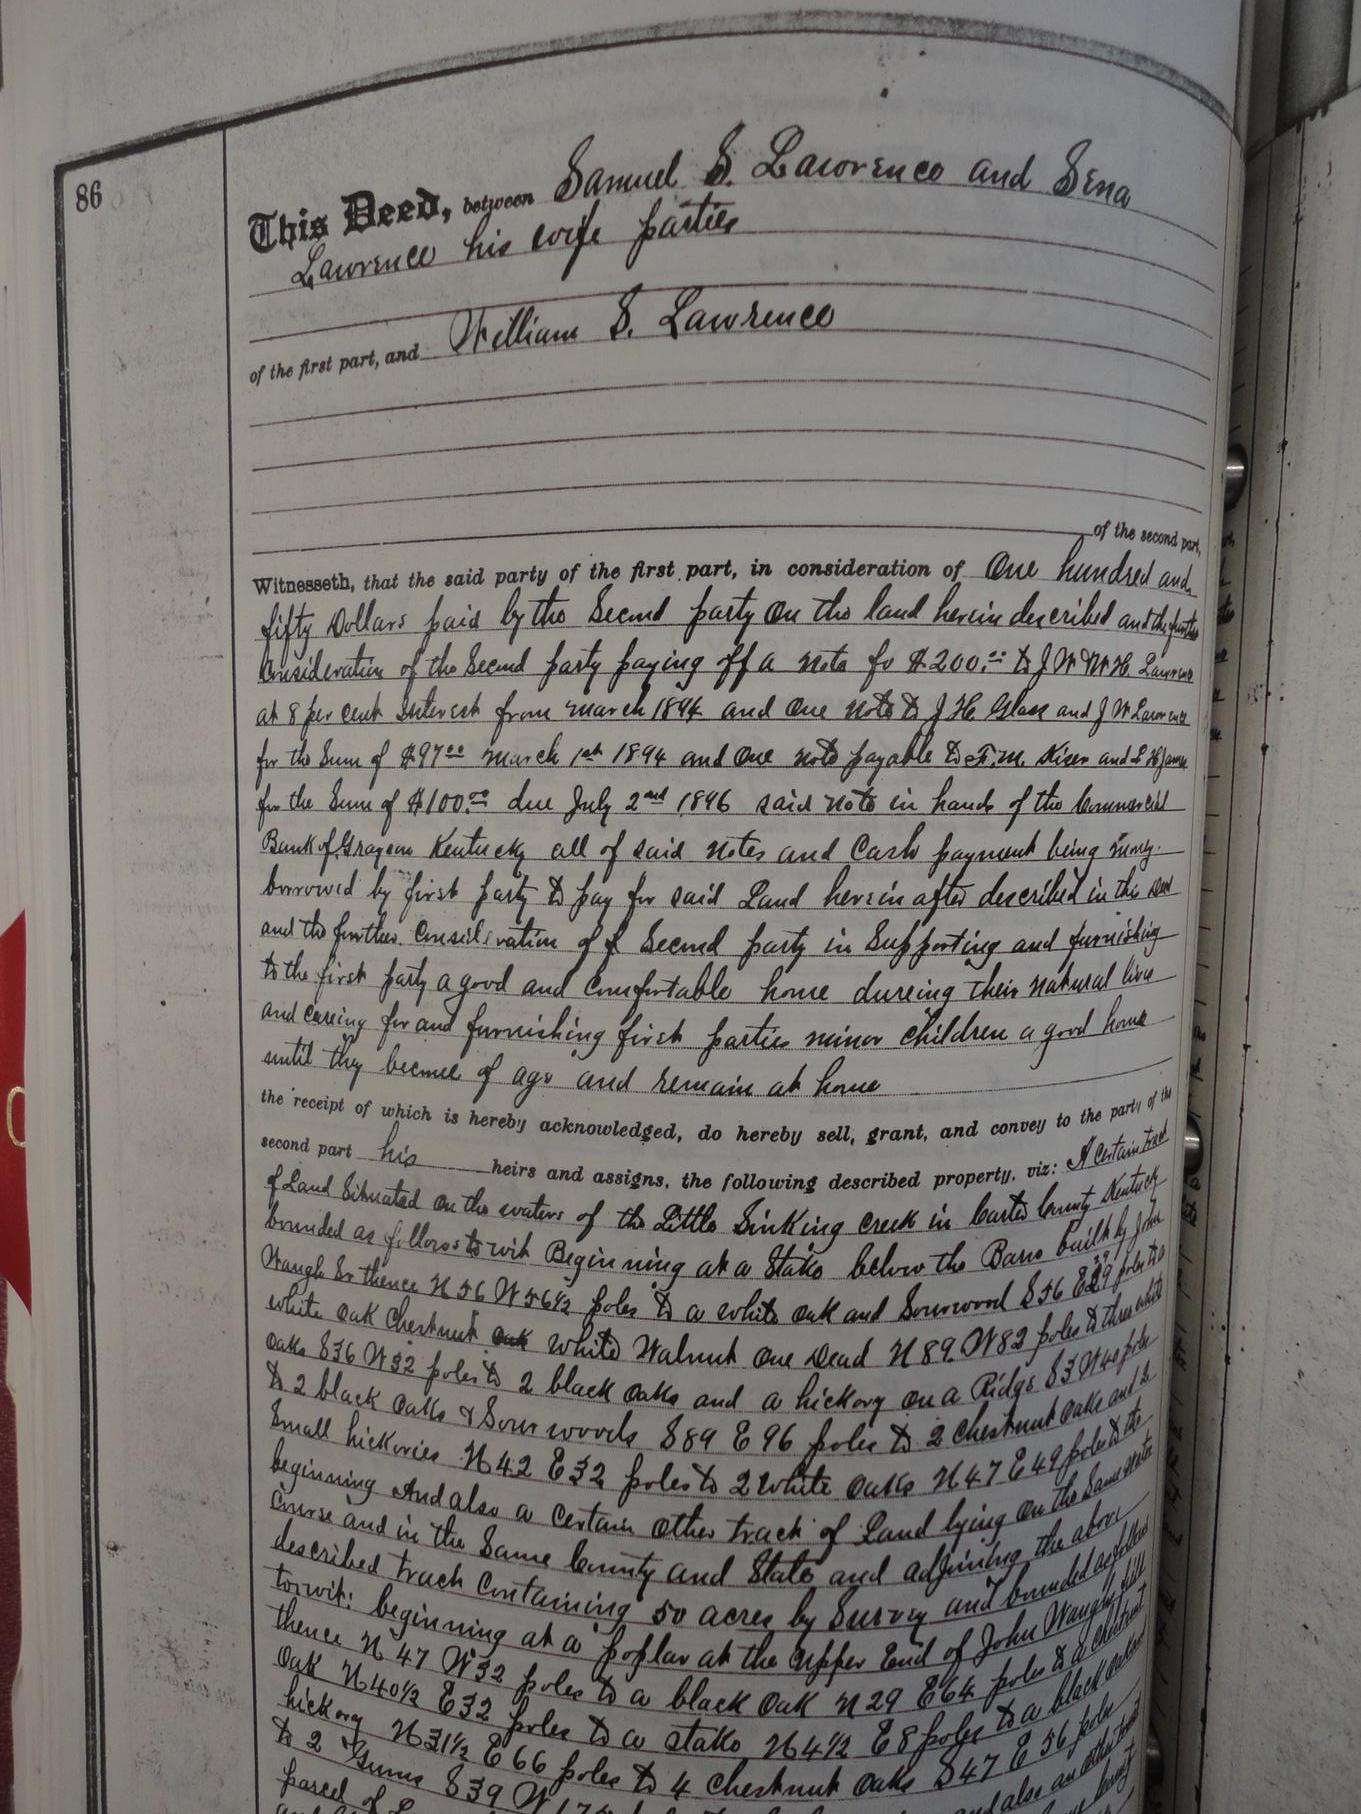 86
This Deed, between Samuel S. Lawrence and Sena
Lawrence his wife parties
of the first part, and William S. Lawrence
of the second part,
Witnesseth, that the said party of the first part, in consideration of One hundred and
fifty Dollars paid by the Second party on the land herein described and the further
Consideration of the Second party paying off a note fo $200.00 to J W & W H. Lawrence
at 8 per cent Interest from march 1894 and One note to J H Glass and J W Lawrence
for the Sum of $97.00 march 1st 1894 and One note payable to F. M. Kiser and L H James
for the Sum of $100.00 due July 2nd 1896 said note in hands of the Commercial
Bank of Grayson Kentucky all of said notes and Cash payment being money
borrowed by first party to pay for said Land herein after described in this deed
and the further Consideration of Second party in Supporting and furnishing
to the first party a good and Comfortable home dureing their natural lives
and careing for and furnishing first parties minor children a good home
until they become of age and remain at home
the receipt of which is hereby acknowledged, do hereby sell, grant, and convey to the party of the
second part his heirs and assigns, the following described property, viz: A Certain track
of Land Situated on the waters of the Little Sinking creek in Carter County Kentucky
bounded as follows to wit Beginning at a Stake below the Barn built by John
Waugh Sr thence N 56 W 56½ poles to a white oak and Sourwood S 56 E 39 poles to a
white oak Chestnut White Walnut One Dead N 89 W 82 poles to three white
oaks S 36 W 32 poles to 2 black oaks and a hickory on a Ridge S 3 W 40 poles
to 2 black oaks & Sourwoods S 89 E 96 poles to 2 Chestnut Oaks and 2
Small hickories N 42 E 32 poles to 2 white oaks N 47 E 49 poles to the
beginning And also a Certain other track of Land lying on the Same water
Course and in the Same County and State and adjoining the above
described track Containing 50 acres by Survey and bounded as follows
towit: beginning at a poplar at the upper End of John Waugh's
thence N 47 W 32 poles to a black Oak N 29 E 64 poles to a chestnut
Oak N 40½ E 32 poles to a stake N 4½ E 8 poles to a black oak and
hickory N 31½ E 66 poles to 4 Chestnut Oaks S 47 E 56 poles
to 2 Gums S 39 W and also an other
parcel of